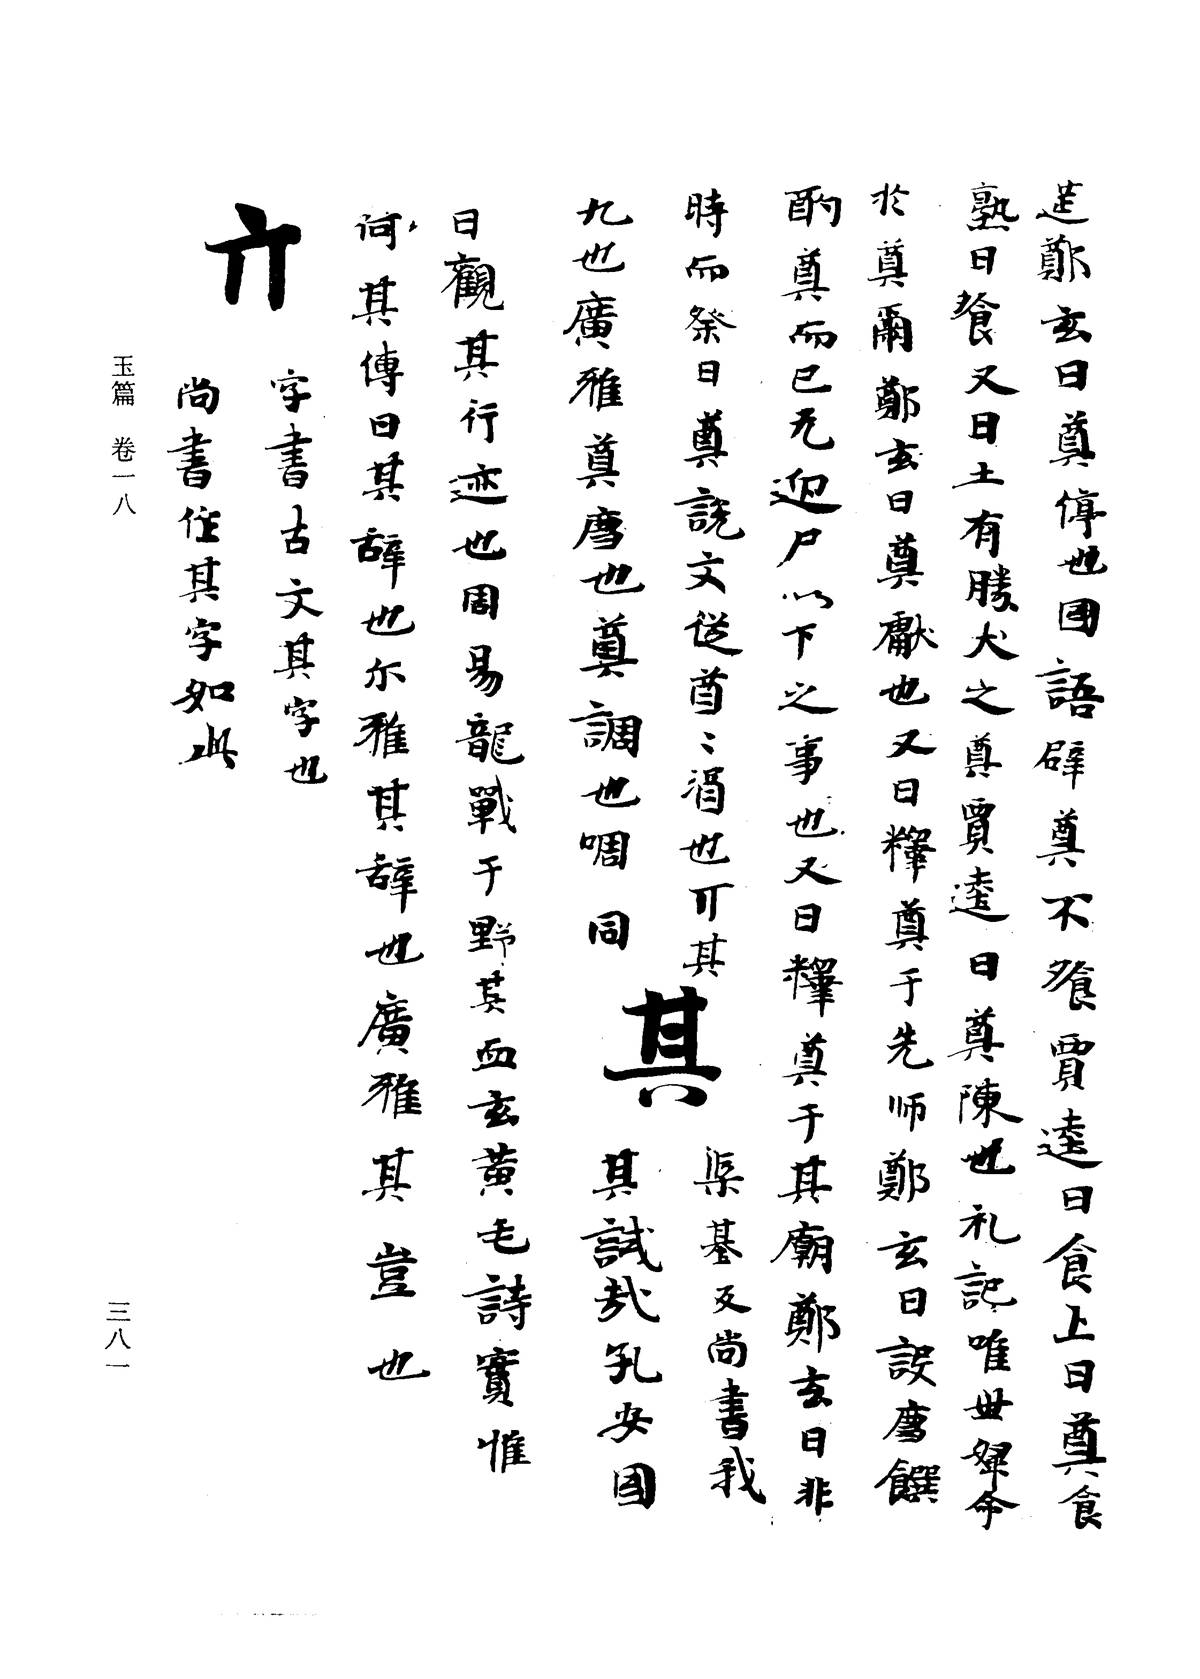 莚鄭玄曰奠停也国語辟奠不飧賈逵曰食上曰奠食
熟曰飧又曰土有勝犬之奠賈逵曰奠陳也礼記唯世婦命
於奠爾鄭玄曰奠獻也又曰釋奠于先师鄭玄曰設廌饌
酌奠而已无迎尸以下之事也又曰釋奠于其廟鄭玄曰非
時而祭曰奠說文從酋〻酒也丌其
九也廣雅奠廌也奠調也啁同
其
渠基反尚書我
其試㢤孔安国
曰觀其行迹也周易龍戰于野其血玄黄毛詩實惟
何〻其傳曰其辞也尔雅其辞也廣雅其豈也
亓
字書古文其字也
尚書住其字如此
玉篇 卷一八
三八一